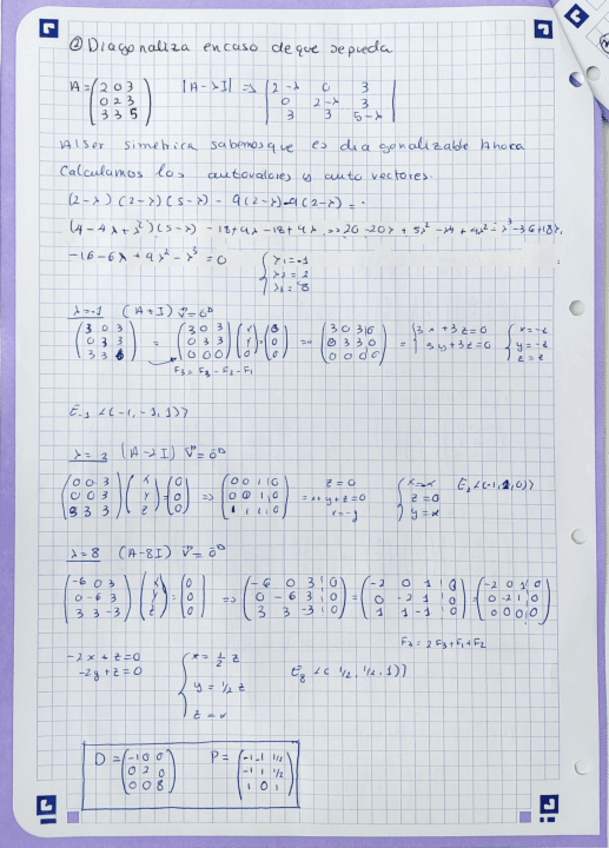 ② Diagonaliza en caso de que se pueda
A = (2 0 3
0 2 3
3 3 5)
|A-λI| => |2-λ 0 3
0 2-λ 3
3 3 5-λ|
Al ser simétrica sabemos que es diagonalizable Ahora
Calculamos los autovalores y autovectores.
(2-λ)(2-λ)(5-λ) - 9(2-λ)-9(2-λ) =
(4-4λ+λ²)(5-λ) - 18+9λ-18+9λ => 20-20λ+5λ²
-16-6λ+9λ²-λ³=0
{λ₁=-1
λ₂=2
λ₃=8
λ=-1 (A+I) v⃗=0⃗
(3 0 3
0 3 3
3 3 6) = (3 0 3
0 3 3
0 0 0)(x
y
z)=(0
0
0) => (3 0 3|0
0 3 3 0
0 0 0 0) = {3x+3z=0
3y+3z=0 {x=-z
y=-z
z=z
F₃=F₃-F₂-F₁
E₋₁ <(-1,-1,1)>
λ=2 (A-2I) v⃗=0⃗
(0 0 3
0 0 3
3 3 3)(x
y
z)=(0
0
0) => (0 0 1|0
0 0 1|0
1 1 1|0) z=0
=x+y+z=0
x=-y
z=0
y=α
E₂<(-1,1,0)>
λ=8 (A-8I) v⃗=0⃗
(-6 0 3
0 -6 3
3 3 -3)(x
y
z)=(0
0
0) => (-6 0 3|0
0 -6 3|0
3 3 -3|0)=(-2 0 1|0
0 -2 1|0
1 1 -1|0)=(-2 0 1|0
0 -2 1|0
0 0 0|0)
F₃=2F₃+F₁+F₂
-2x+z=0
-2y+z=0
{x=½ z
y=½ z
E₈ <(½,½,1)>
D=(-1 0 0
0 2 0
0 0 8)
P=(-1 -1 ½
-1 1 ½
1 0 1)